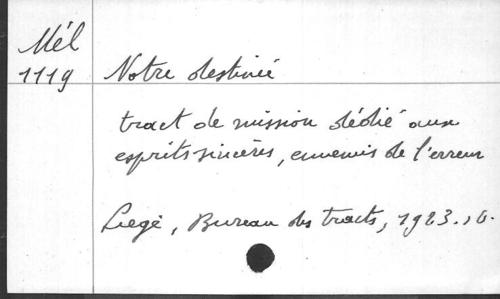 Mél
1119 Notre destinée
tract de mission dédié aux
esprits sincères, ennemis de l'erreur
Liège, Bureau des tracts, 1923. 16.